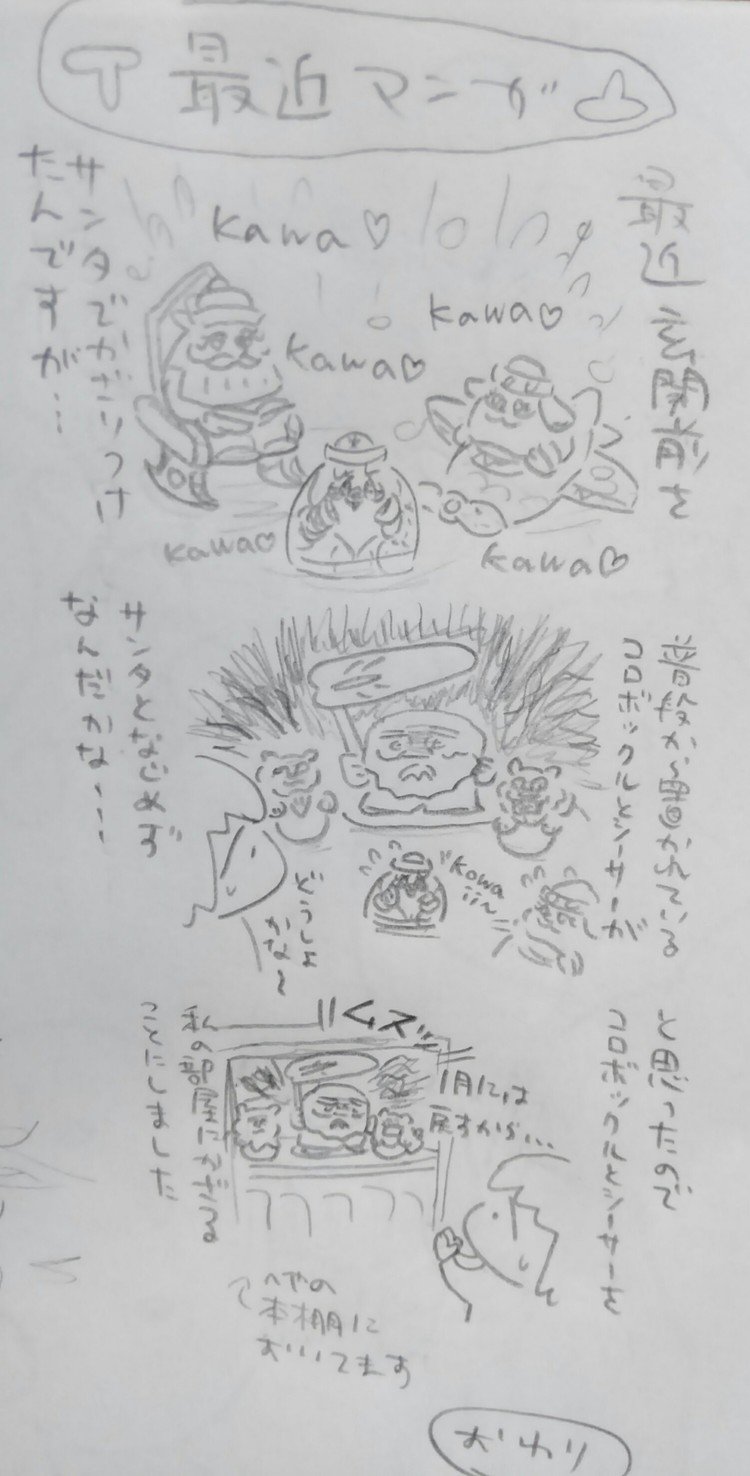 最近マンガ
最近 玄関を
サンタでかざりつけ
たんですが…
Kawa♡
Kawa♡
Kawa♡
Kawa♡
Kawa♡
普段から置かれている
コロボックルとシーサーが
サンタとなじめず
なんだかな…
kowa
ii〜
どうしよ
かな〜
と思ったので
コロボックルとシーサーを
私の部屋にかざる
ことにしました
1月には
戻すから…
へやの
本棚に
おいてます
おわり